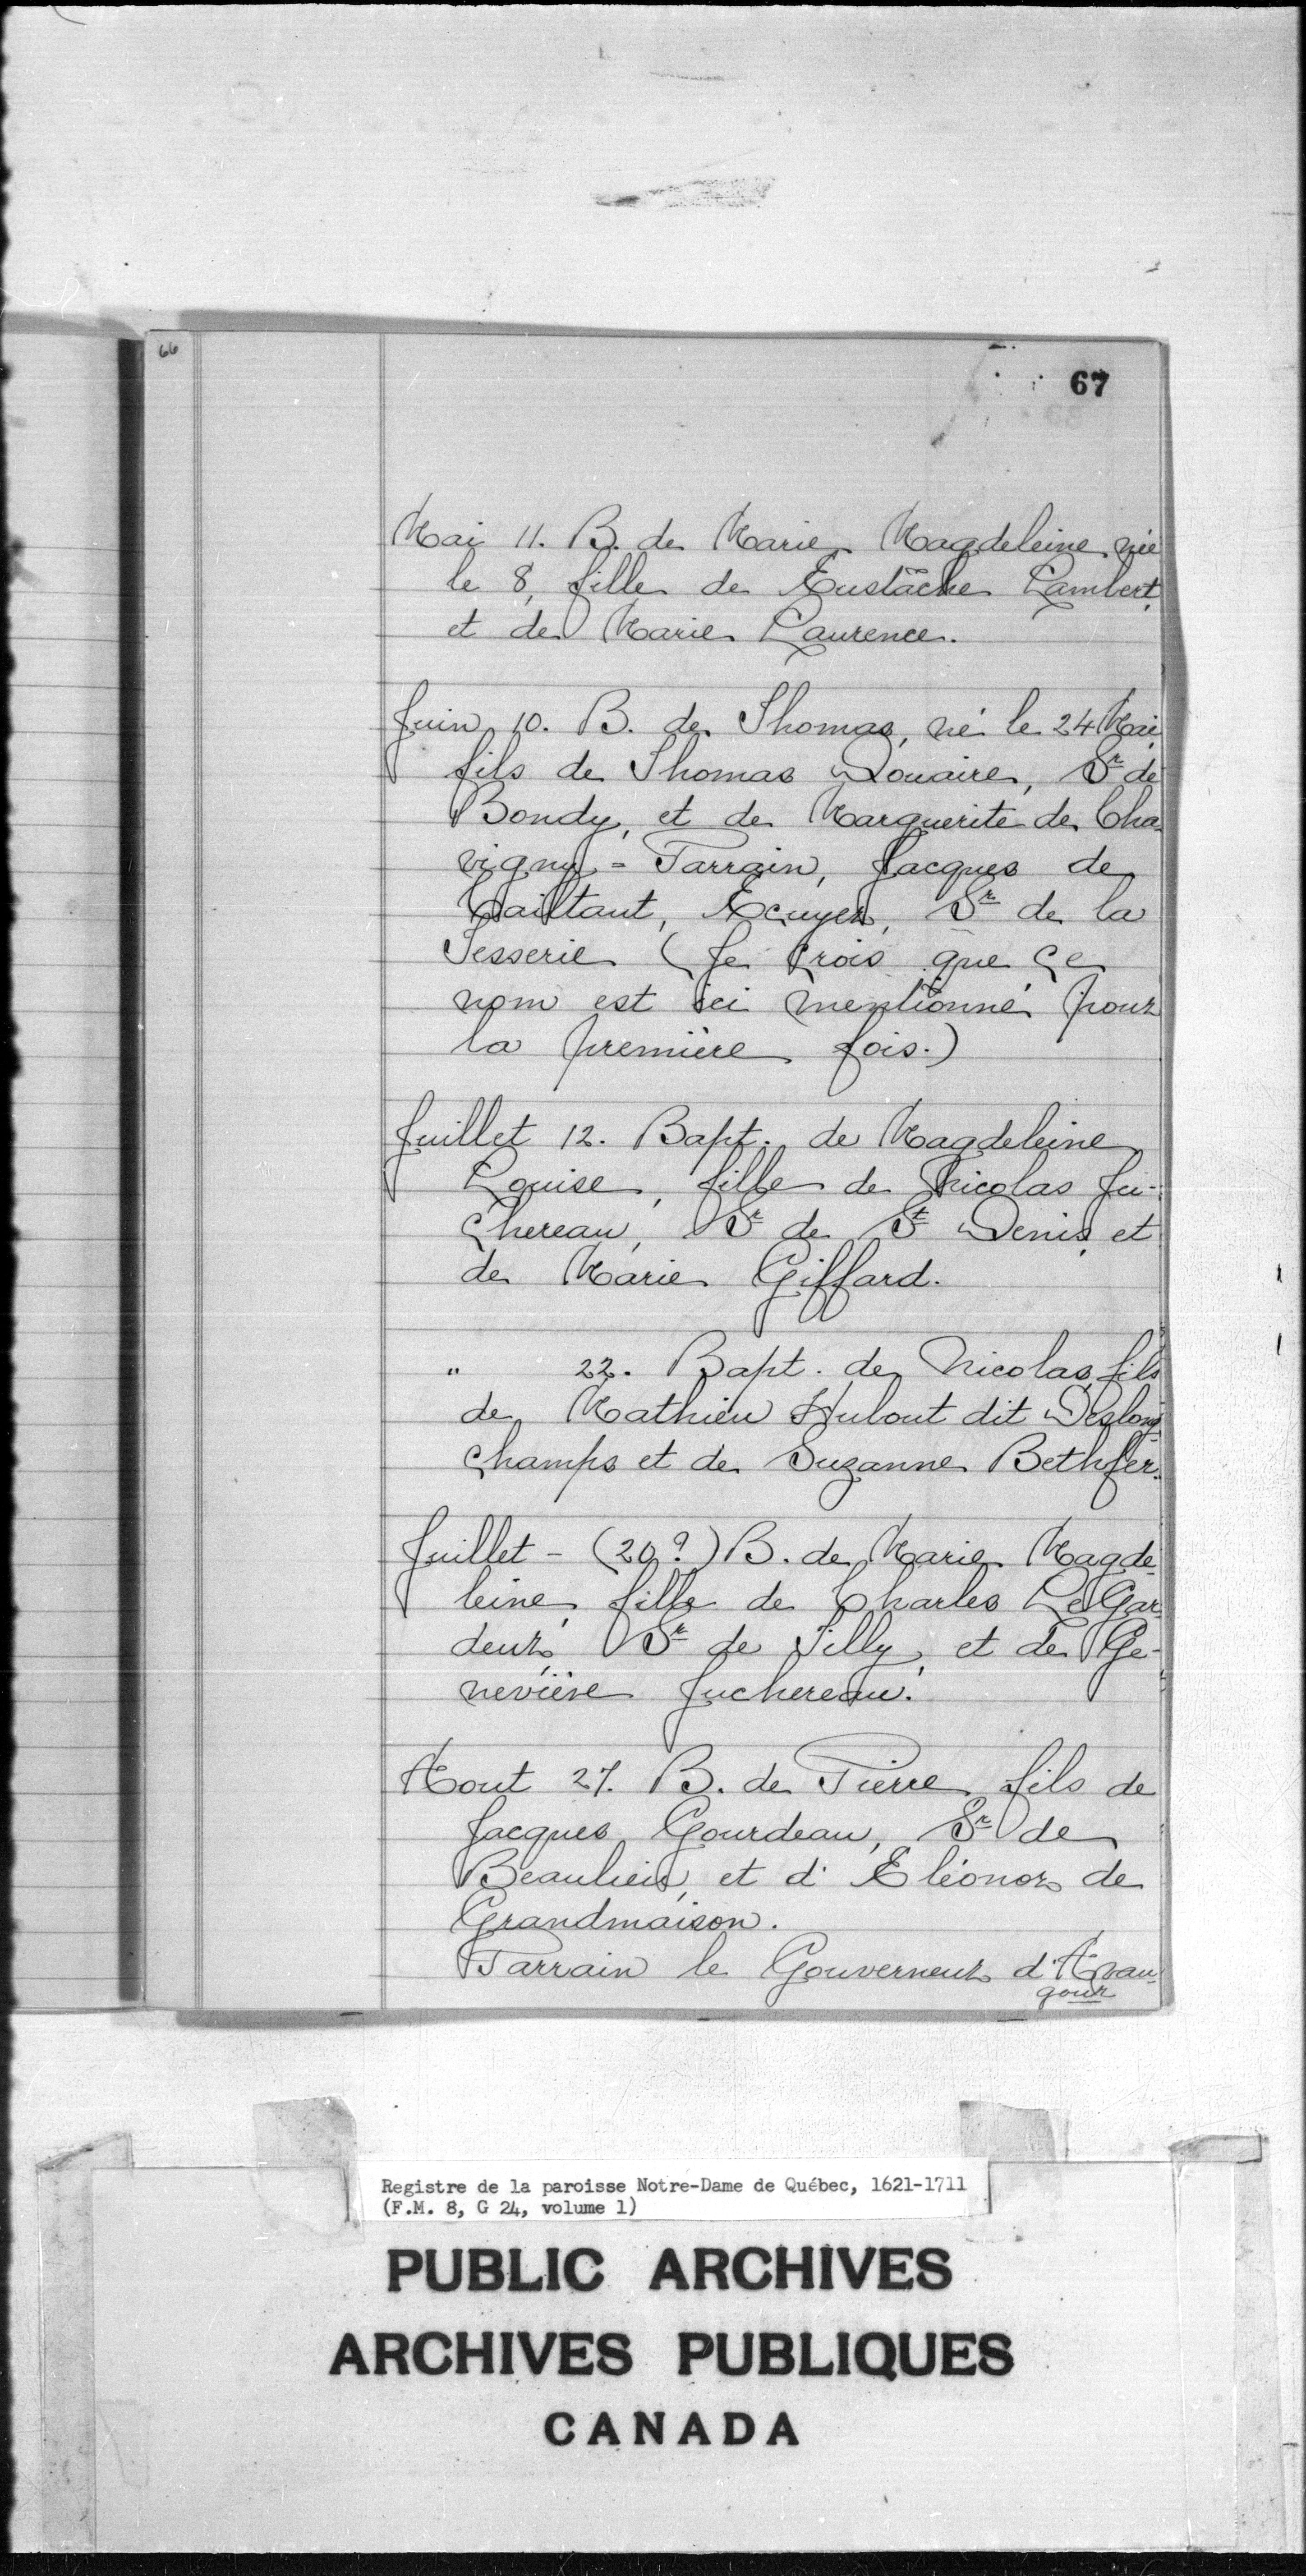 66
67
Mai 11. B. de Marie Magdeleine née
le 8, fille de Eustache Lambert,
et de Marie Laurence.
Juin 10. B. de Thomas, né le 24 Mai,
fils de Thomas Douaire, Sr de
Bondy, et de Marguerite de Cha-
vigny = Parrain, Jacques de
Cailtaut, Ecuyer, Sr de la
Tesserie (Je crois que ce
nom est ici mentionné pour
la première fois.)
Juillet 12. Bapt. de Magdeleine
Louise, fille de Nicolas Ju-
chereau, Sr de St Denis, et
de Marie Giffard.
" 22. Bapt. de Nicolas, fils
de Mathieu Hubout dit Deslong-
champs et de Suzanne Bethfer.
Juillet - (20?) B. de Marie Magde-
leine, fille de Charles Le Gar-
deur, Sr de Tilly, et de Ge-
neviève Juchereau.
Aout 27. B. de Pierre fils de
Jacques Gourdeau, Sr de
Beaulieu, et d'Eléonor de
Grandmaison.
Parrain le Gouverneur d'Avau-
gour
Registre de la paroisse Notre-Dame de Québec, 1621-1711
(F.M. 8, G 24, volume 1)
PUBLIC ARCHIVES
ARCHIVES PUBLIQUES
CANADA